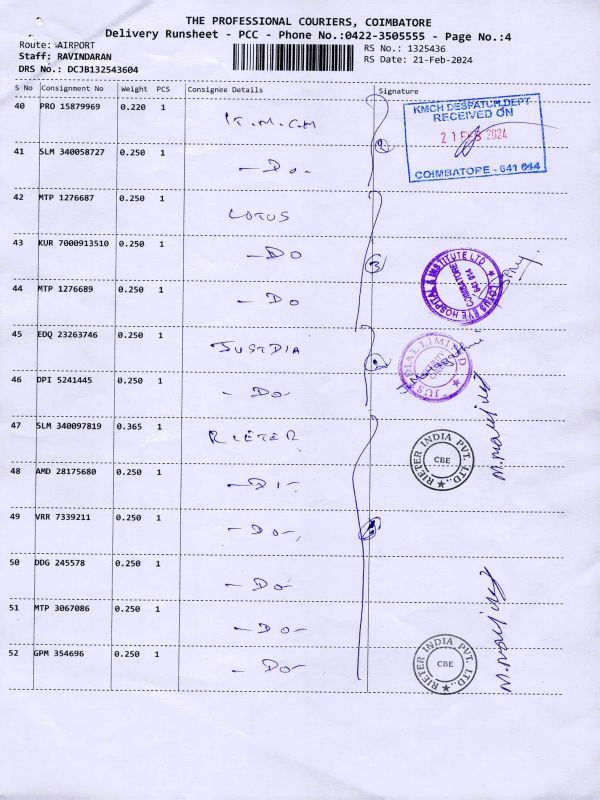 THE PROFESSIONAL COURIERS, COIMBATORE
Delivery Runsheet - PCC - Phone No.:0422-3505555 - Page No.:4
Route: AIRPORT
Staff: RAVINDARAN
DRS No.: DCJB132543604
RS No.: 1325436
RS Date: 21-Feb-2024
S No Consignment No Weight PCS Consignee Details Signature
40 PRO 15879969 0.220 1 K.M.C.H
KMCH DESPATCH DEPT
RECEIVED ON
21 FEB 2024
COIMBATORE - 641 014
41 SLM 340058727 0.250 1 - Do -
2
42 MTP 1276687 0.250 1 LOTUS
43 KUR 7000913510 0.250 1 - Do
3
LOTUS EYE HOSPITAL & INSTITUTE LTD
COIMBATORE
641 014
44 MTP 1276689 0.250 1 - Do
45 EDQ 23263746 0.250 1 JUSTDIA
JUSTDIAL LIMITED
46 DPI 5241445 0.250 1 - Do -
47 SLM 340097819 0.365 1 RIETER
RIETER INDIA PVT. LTD.,
CBE
48 AMD 28175680 0.250 1 - Do -
49 VRR 7339211 0.250 1 - Do -
50 DDG 245578 0.250 1 - Do -
51 MTP 3067086 0.250 1 - Do -
52 GPM 354696 0.250 1 - Do -
RIETER INDIA PVT. LTD.,
CBE